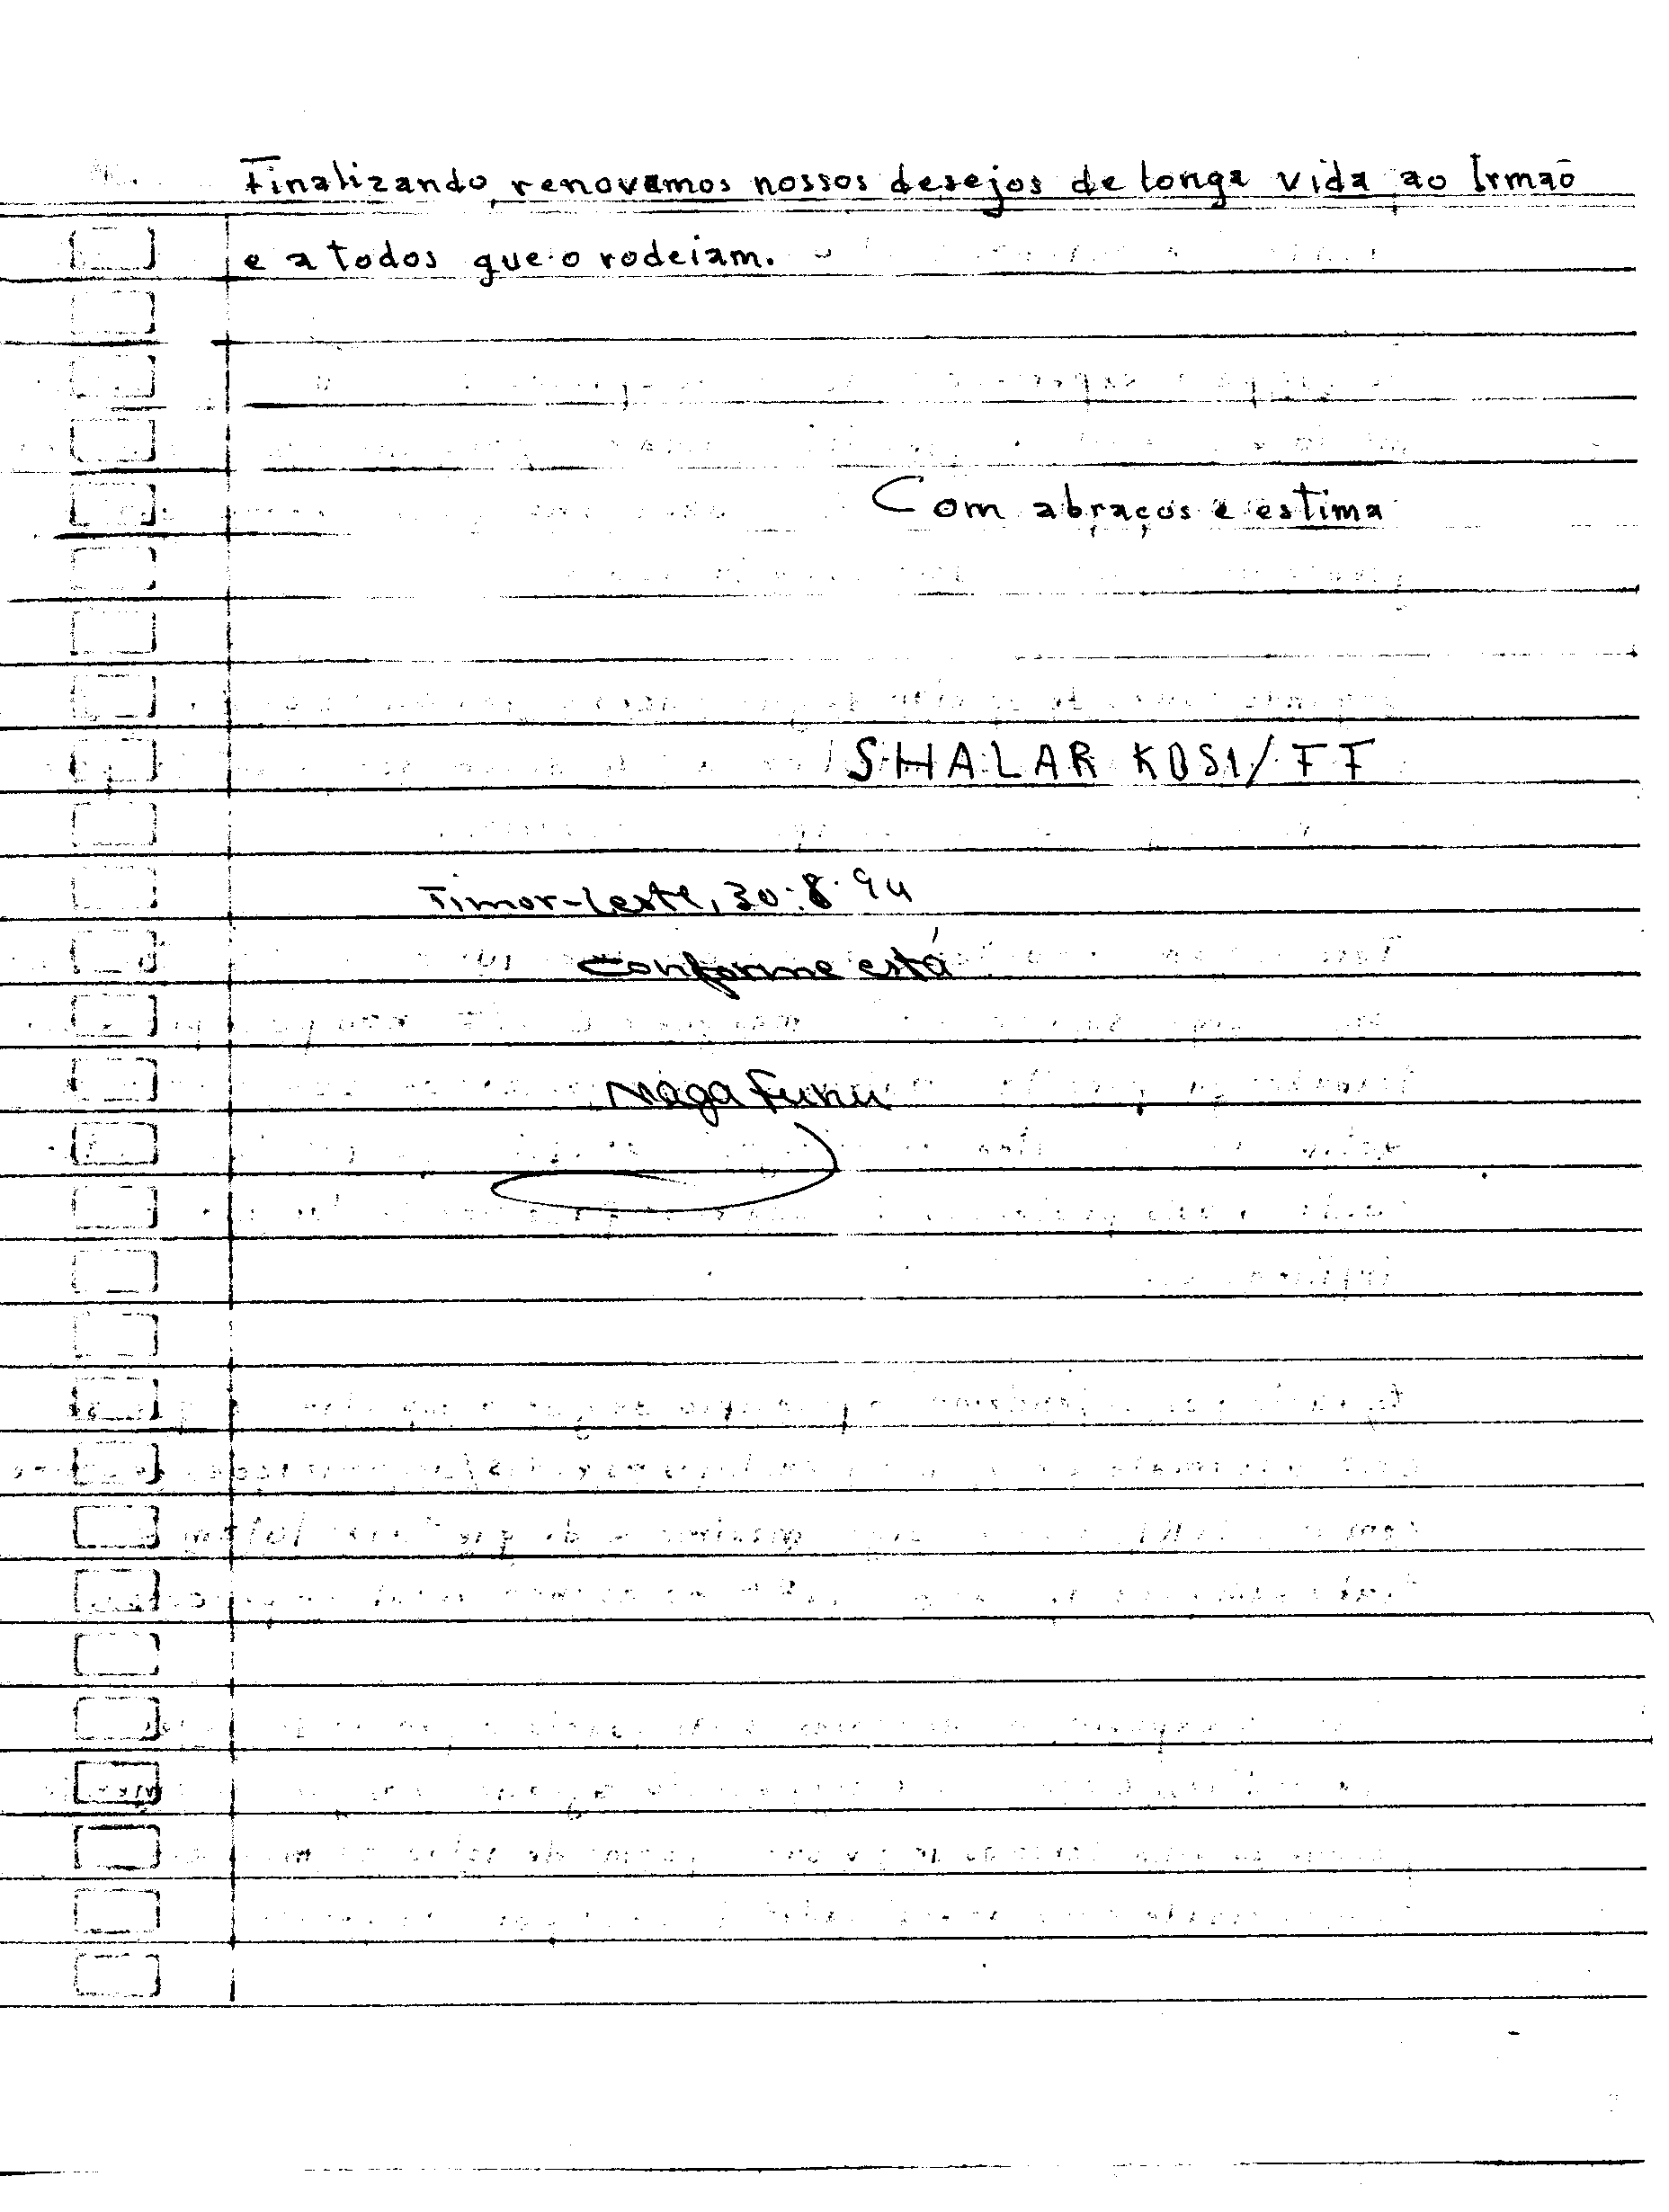 Finalizando, renovamos nossos desejos de longa vida ao Irmão
e a todos que o rodeiam.
Com abraços e estima
SHALAR KOSI/FF
Timor-Leste, 30.8.94
Conforme está